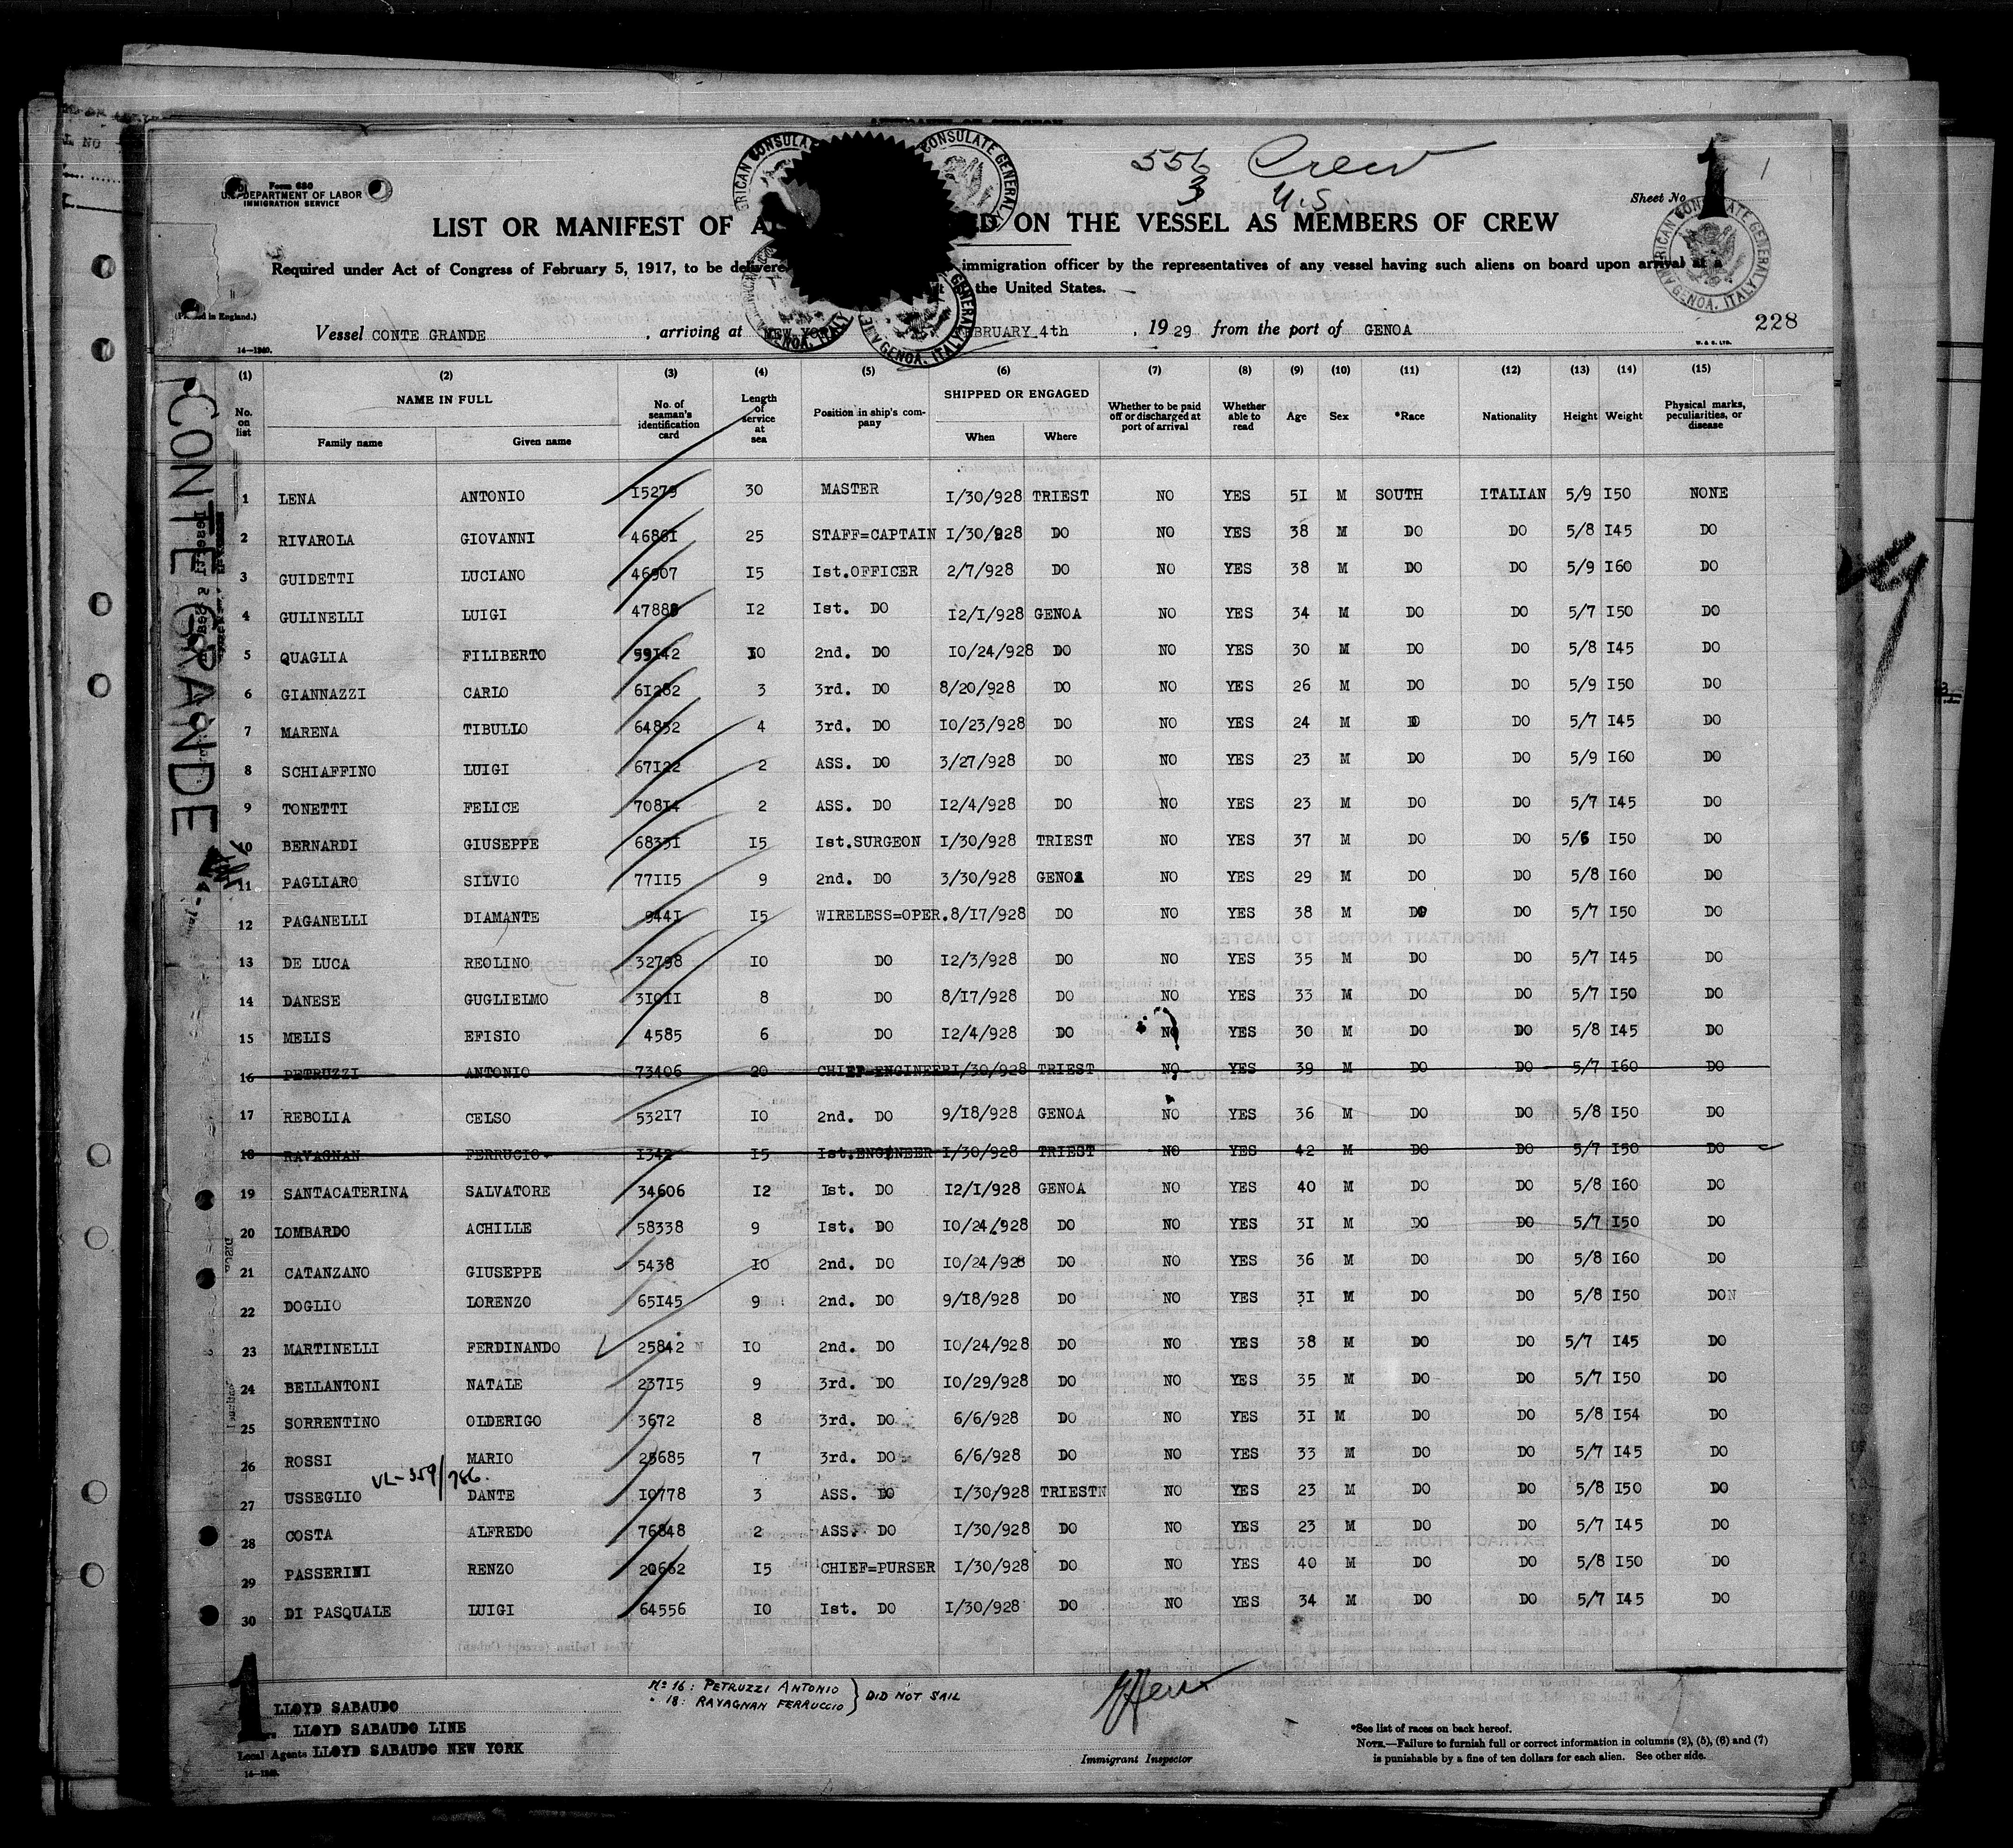 556 Crew
3 U.S.
Form 680
U.S. DEPARTMENT OF LABOR
IMMIGRATION SERVICE
Sheet No. 1
LIST OR MANIFEST OF ON THE VESSEL AS MEMBERS OF CREW
Required under Act of Congress of February 5, 1917, to be immigration officer by the representatives of any vessel having such aliens on board upon arrival at a
the United States.
(Printed in England.)
Vessel CONTE GRANDE , arriving at NEW YORK FEBRUARY 4th , 1929 from the port of GENOA
228
14—1240.
W. & S. LTD.
AMERICAN CONSULATE GENERAL GENOA, ITALY
CONTE GRANDE
(1) (2) (3) (4) (5) (6) (7) (8) (9) (10) (11) (12) (13) (14) (15)
No. on list NAME IN FULL Family name Given name No. of seaman's identification card Length of service at sea Position in ship's company SHIPPED OR ENGAGED When Where Whether to be paid off or discharged at port of arrival Whether able to read Age Sex *Race Nationality Height Weight Physical marks, peculiarities, or disease
1 LENA ANTONIO 15279 30 MASTER I/30/928 TRIEST NO YES 5I M SOUTH ITALIAN 5/9 I50 NONE
2 RIVAROLA GIOVANNI 4686I 25 STAFF=CAPTAIN I/30/928 DO NO YES 38 M DO DO 5/8 I45 DO
3 GUIDETTI LUCIANO 46907 I5 Ist.OFFICER 2/7/928 DO NO YES 38 M DO DO 5/9 I60 DO
4 GULINELLI LUIGI 47888 I2 Ist. DO I2/I/928 GENOA NO YES 34 M DO DO 5/7 I50 DO
5 QUAGLIA FILIBERTO 59I42 I0 2nd. DO I0/24/928 DO NO YES 30 M DO DO 5/8 I45 DO
6 GIANNAZZI CARLO 6I282 3 3rd. DO 8/20/928 DO NO YES 26 M DO DO 5/9 I50 DO
7 MARENA TIBULLO 64852 4 3rd. DO I0/23/928 DO NO YES 24 M DO DO 5/7 I45 DO
8 SCHIAFFINO LUIGI 67I22 2 ASS. DO 3/27/928 DO NO YES 23 M DO DO 5/9 I60 DO
9 TONETTI FELICE 708I4 2 ASS. DO I2/4/928 DO NO YES 23 M DO DO 5/7 I45 DO
10 BERNARDI GIUSEPPE 6835I I5 Ist.SURGEON I/30/928 TRIEST NO YES 37 M DO DO 5/6 I50 DO
11 PAGLIARO SILVIO 77II5 9 2nd. DO 3/30/928 GENOA NO YES 29 M DO DO 5/8 I60 DO
12 PAGANELLI DIAMANTE 944I I5 WIRELESS=OPER. 8/I7/928 DO NO YES 38 M DO DO 5/7 I50 DO
13 DE LUCA REOLINO 32798 I0 DO I2/3/928 DO NO YES 35 M DO DO 5/7 I45 DO
14 DANESE GUGLIELMO 3I0II 8 DO 8/I7/928 DO NO YES 33 M DO DO 5/7 I50 DO
15 MELIS EFISIO 4585 6 DO I2/4/928 DO NO YES 30 M DO DO 5/8 I45 DO
16 PETRUZZI ANTONIO 73406 20 CHIEF=ENGINEER I/30/928 TRIEST NO YES 39 M DO DO 5/7 I60 DO
17 REBOLIA CELSO 532I7 I0 2nd. DO 9/I8/928 GENOA NO YES 36 M DO DO 5/8 I50 DO
18 RAVAGNAN FERRUCIO I342 I5 Ist.ENGINEER I/30/928 TRIEST NO YES 42 M DO DO 5/7 I50 DO
19 SANTACATERINA SALVATORE 34606 I2 Ist. DO I2/I/928 GENOA NO YES 40 M DO DO 5/8 I60 DO
20 LOMBARDO ACHILLE 58338 9 Ist. DO I0/24/928 DO NO YES 3I M DO DO 5/7 I50 DO
21 CATANZANO GIUSEPPE 5438 I0 2nd. DO I0/24/928 DO NO YES 36 M DO DO 5/8 I60 DO
22 DOGLIO LORENZO 65I45 9 2nd. DO 9/I8/928 DO NO YES 3I M DO DO 5/8 I50 DO
23 MARTINELLI FERDINANDO 25842 I0 2nd. DO I0/24/928 DO NO YES 38 M DO DO 5/7 I45 DO
24 BELLANTONI NATALE 237I5 9 3rd. DO I0/29/928 DO NO YES 35 M DO DO 5/7 I50 DO
25 SORRENTINO OLDERIGO 3672 8 3rd. DO 6/6/928 DO NO YES 3I M DO DO 5/8 I54 DO
26 ROSSI MARIO 25685 7 3rd. DO 6/6/928 DO NO YES 33 M DO DO 5/7 I45 DO
VL-359/786.
27 USSEGLIO DANTE I0778 3 ASS. DO I/30/928 TRIEST NO YES 23 M DO DO 5/8 I50 DO
28 COSTA ALFREDO 76848 2 ASS. DO I/30/928 DO NO YES 23 M DO DO 5/7 I45 DO
29 PASSERINI RENZO 20662 I5 CHIEF=PURSER I/30/928 DO NO YES 40 M DO DO 5/8 I50 DO
30 DI PASQUALE LUIGI 64556 I0 Ist. DO I/30/928 DO NO YES 34 M DO DO 5/7 I45 DO
1
Nº 16: PETRUZZI ANTONIO
" 18: RAVAGNAN FERRUCCIO } DID NOT SAIL
LLOYD SABAUDO
LLOYD SABAUDO LINE
Local Agents LLOYD SABAUDO NEW YORK
14—1240.
Immigrant Inspector
*See list of races on back hereof.
NOTE.—Failure to furnish full or correct information in columns (2), (5), (6) and (7)
is punishable by a fine of ten dollars for each alien. See other side.